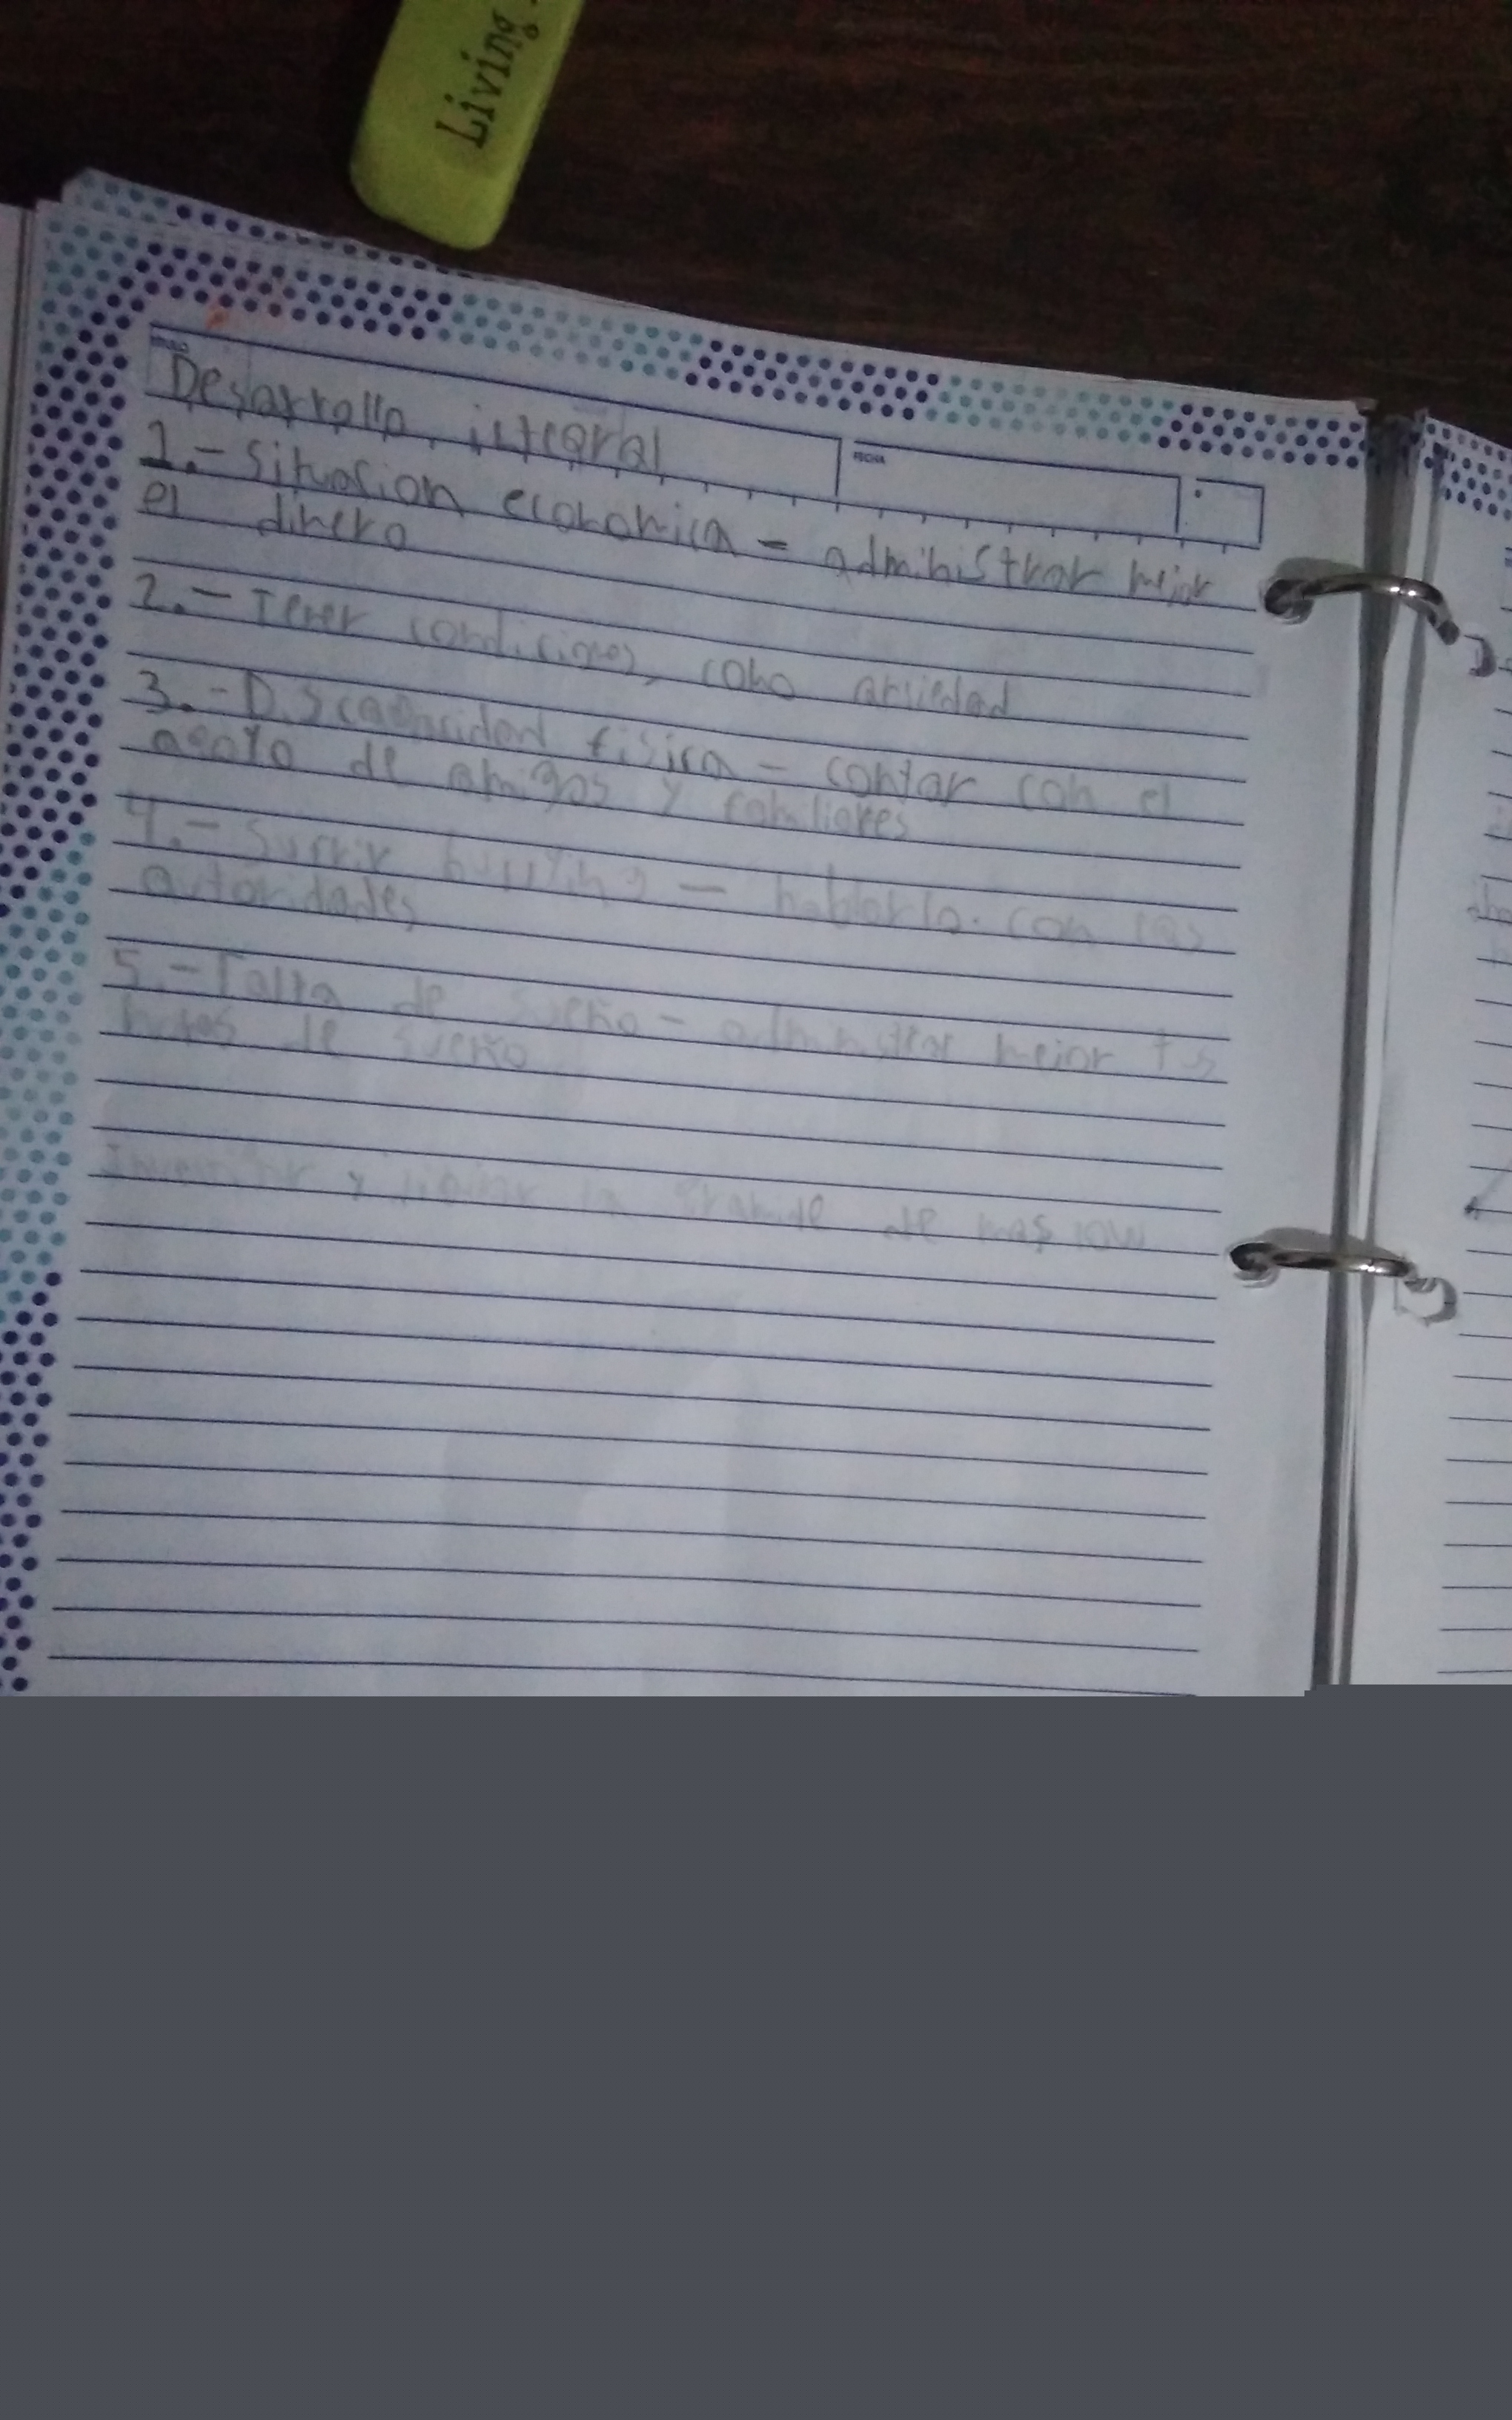 Living
TITULO
Desarrollo integral
FECHA
1.- Situacion economica = administrar mejor
el dinero
2.- Tener condiciones como ansiedad
3.- Discapacidad fisica - contar con el
apoyo de amigos y familiares
4.- Sufrir bullying - hablarlo con las
autoridades
5.- Falta de sueño - administrar mejor tus
horas de sueño
y la piramide de maslow